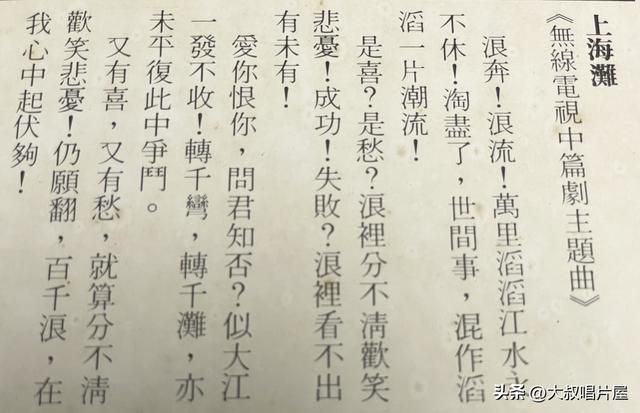 上海灘
《無線電視中篇劇主題曲》
浪奔！浪流！萬里滔滔江水永
不休！淘盡了，世間事，混作滔
滔一片潮流！
是喜？是愁？浪裡分不清歡笑
悲憂！成功！失敗？浪裡看不出
有未有！
愛你恨你，問君知否？似大江
一發不收！轉千彎，轉千灘，亦
未平復此中爭鬥。
又有喜，又有愁，就算分不清
歡笑悲憂！仍願翻，百千浪，在
我心中起伏夠！
头条 @大叔唱片屋